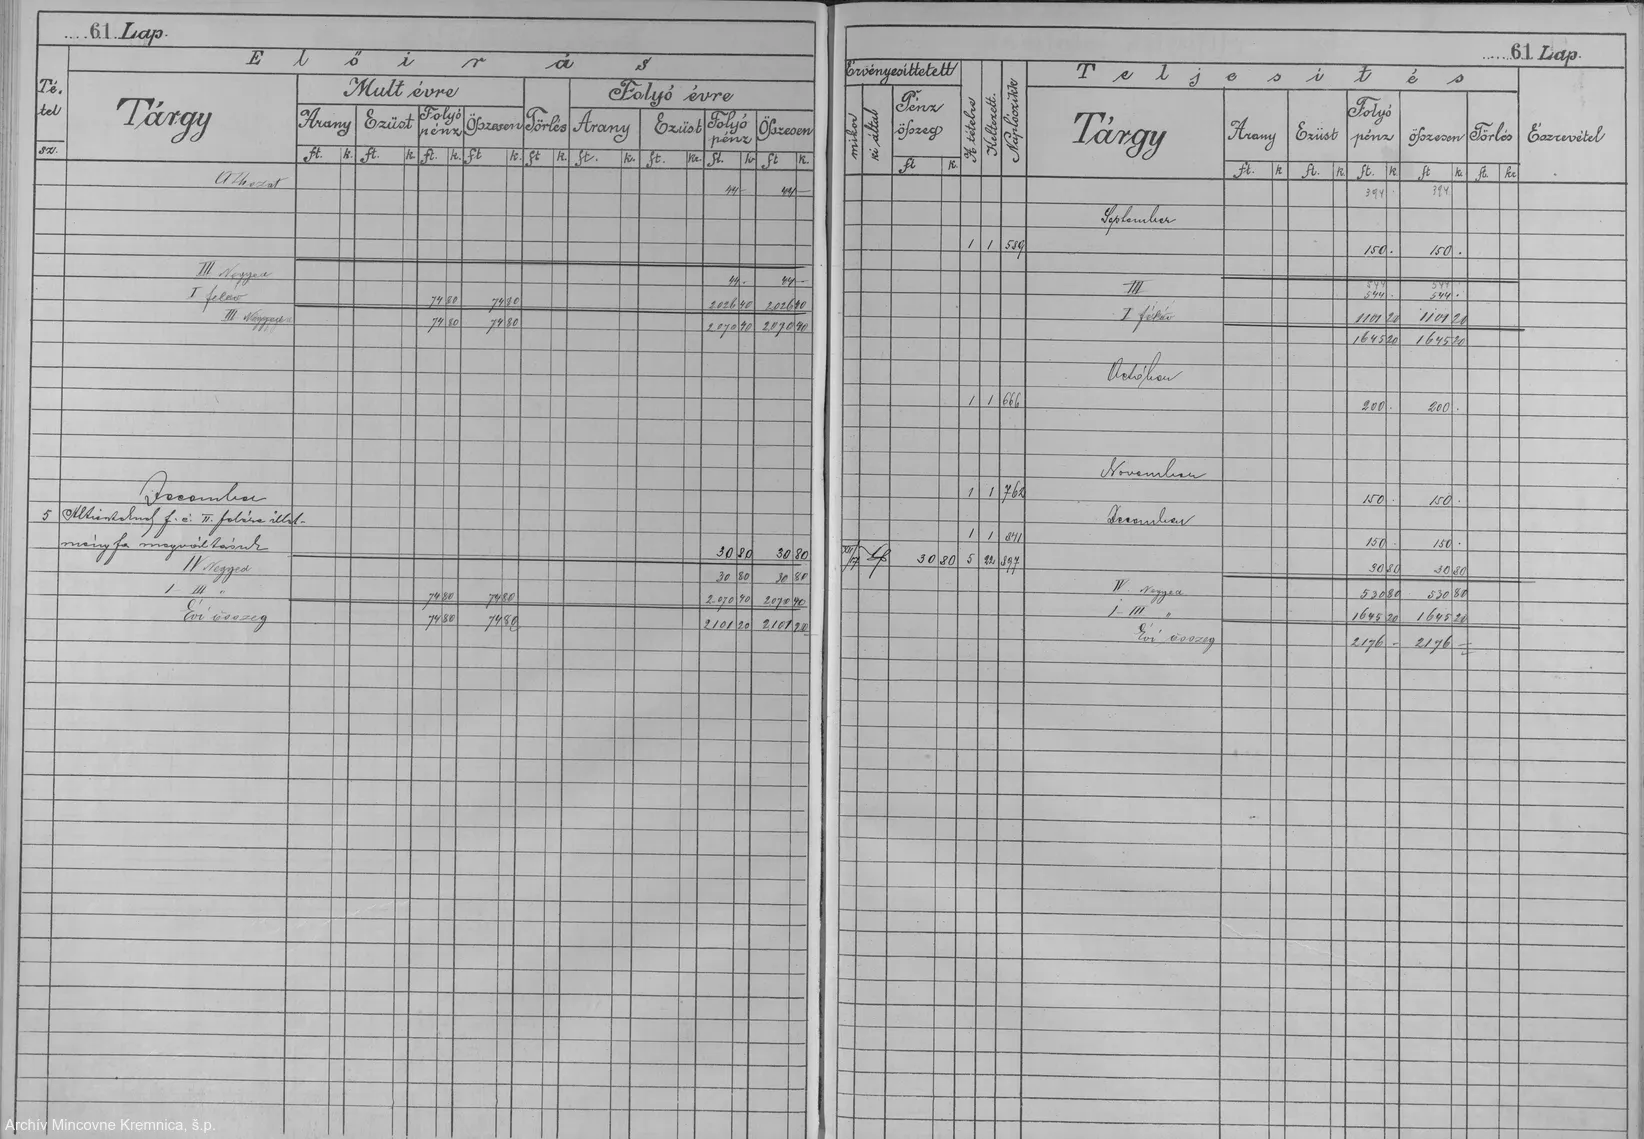 61 Lap.
Előirás
Tétel sz.
Tárgy
Mult évre
Folyó évre
Arany Ezüst Folyó pénz Összesen Törlés Arany Ezüst Folyó pénz Összesen
ft. k. ft. k. ft. k. ft k. ft k. ft. kr. ft. kr. ft. kr ft k.
Áthozat 44 – 44 –
III Negyed 44 – 44 –
I felév 74 80 74 80 2026 40 2026 40
III Negyed 74 80 74 80 2070 40 2070 40
December
5 f. é. II.
megváltásuk 30 80 30 80
IV Negyed 30 80 30 80
I III " 74 80 74 80 2070 40 2070 40
Évi összeg 74 80 74 80 2101 20 2101 20
61 Lap.
Érvényesíttetett
Teljesités
mikor
ki által
Pénz összeg
K tételre
Keltezett.
Naplóczikk
Tárgy
Arany Ezüst Folyó pénz összesen Törlés Észrevétel
ft k. ft. k ft. k. ft. k. ft k. ft. kr
394 . 394
September
1 1 589 150 . 150 .
544 544
III 544 . 544 .
I félév 1101 20 1101 20
1645 20 1645 20
October
1 1 666 200 . 200 .
November
1 1 762 150 . 150 .
December
1 1 841 150 . 150 .
30 80 5 22 897 30 80 30 80
IV Negyed 530 80 530 80
I–III " 1645 20 1645 20
Évi összeg 2176 – 2176 –
Archív Mincovne Kremnica, š.p.